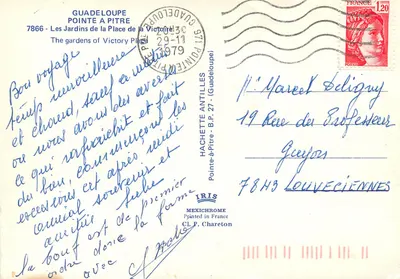 GUADELOUPE
POINTE A PITRE
7866 - Les Jardins de la Place de la Victoire
The gardens of Victory Pla
971 POINTE A PITRE
GUADELOUPE
29-11
1979
FRANCE
1,20
Bon voyage
temps merveilleux
et chaud, sauf ce matin
où nous avons des averses
ce qui rafraîchit et fait
du bien, commençons les
excursions cet après midi
amical souvenir et
amitiés
la bouf est de premier
ordre donc la forme
avec
HACHETTE ANTILLES
Pointe-à-Pitre - B.P. 27 - (Guadeloupe)
IRIS
MEXICHROME
Printed in France
Cl. F. Chareton
Mr Marcel Deligny
19 Rue des Professeur
Guyon
78H3 LOUVECIENNES